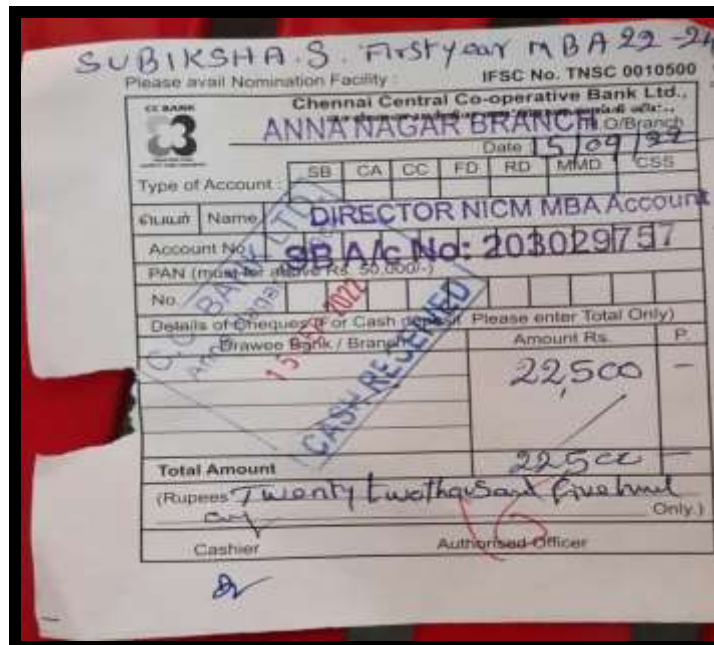 SUBIKSHA.S. First year MBA 22-24
Please avail Nomination Facility : IFSC No. TNSC 0010500
CC BANK
Chennai Central Co-operative Bank Ltd.,
ANNA NAGAR BRANCH H.O/Branch
Date 15/09/22
Type of Account : SB CA CC FD RD MMD CSS
பெயர் Name DIRECTOR NICM MBA Account
Account No. SB A/c No: 203029757
PAN (must for above Rs. 50,000/-)
No.
Details of Cheques (For Cash deposit Please enter Total Only)
Drawee Bank / Branch Amount Rs. P.
22,500 —
C.C. BANK LTD.
Anna Nagar
15 SEP 2022
CASH RECEIVED
Total Amount 22500 —
(Rupees Twenty two thousand five hund
only Only.)
Cashier Authorised Officer